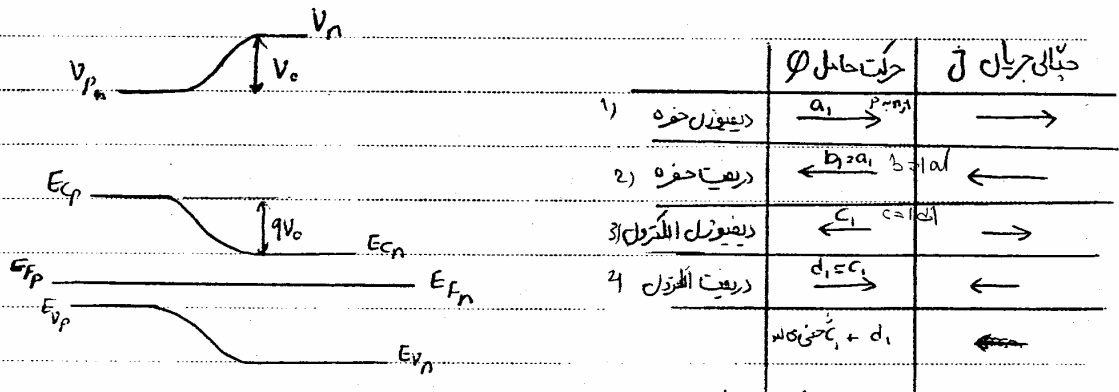 Vn
Vp
V₀
ECp
qV₀
ECn
EFp
EFn
EVp
EVn
حرکت حامل φ
چگالی جریان J
1) دیفیوژن حفره
a₁
2) دریفت حفره
b₁=a₁
3) دیفیوژن الکترون
C₁
4 دریفت الکترون
d₁=C₁
C₁ + d₁